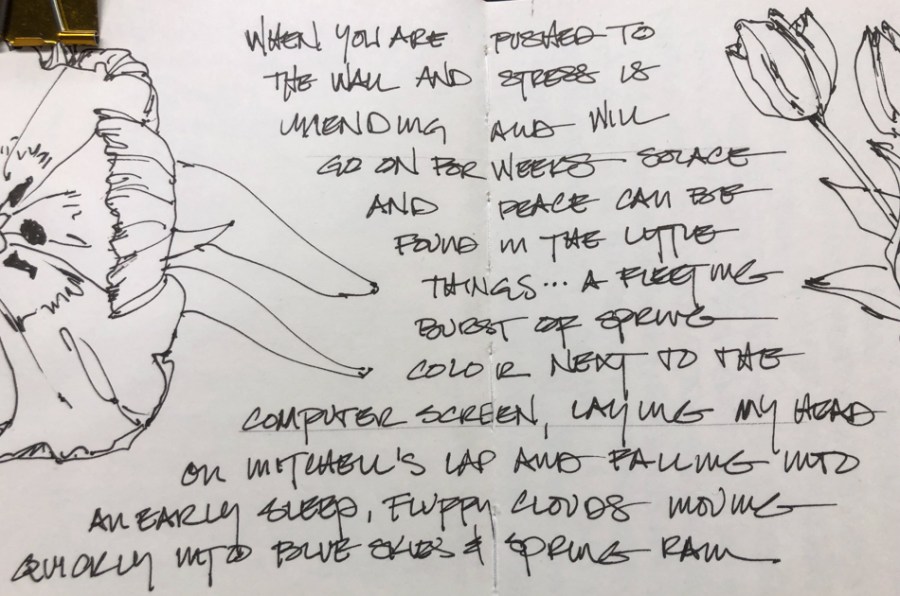 WHEN YOU ARE PUSHED TO
THE WALL AND STRESS IS
UNENDING AND WILL
GO ON FOR WEEKS SOLACE
AND PEACE CAN BE
FOUND IN THE LITTLE
THINGS... A FLEETING
BURST OF SPRING
COLOR NEXT TO THE
COMPUTER SCREEN, LAYING MY HEAD
ON MITCHELL'S LAP AND FALLING INTO
AN EARLY SLEEP, FLUFFY CLOUDS MOVING
QUICKLY INTO BLUE SKIES & SPRING RAIN.